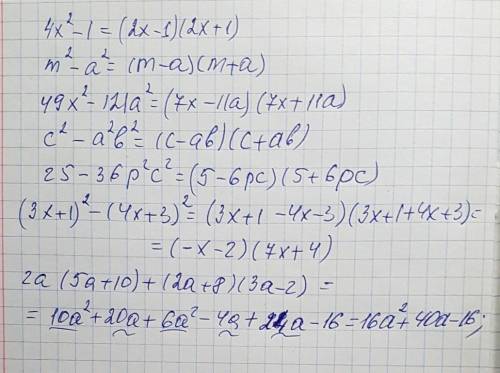 4x² - 1 = (2x - 1)(2x + 1)
m² - a² = (m - a)(m + a)
49x² - 121a² = (7x - 11a)(7x + 11a)
c² - a²b² = (c - ab)(c + ab)
25 - 36p²c² = (5 - 6pc)(5 + 6pc)
(3x + 1)² - (4x + 3)² = (3x + 1 - 4x - 3)(3x + 1 + 4x + 3) =
= (-x - 2)(7x + 4)
2a (5a + 10) + (2a + 8)(3a - 2) =
= 10a² + 20a + 6a² - 4a + 24a - 16 = 16a² + 40a - 16;